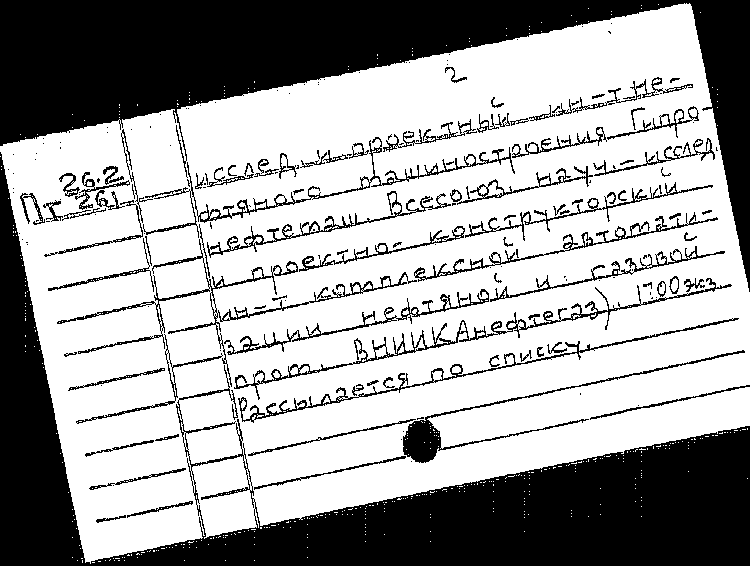 2
Пт 26.2
261
исслед. и проектный ин-т не-
фтяного машиностроения Гипро-
нефтемаш. Всесоюз. науч.-исслед.
и проектно-конструкторский
ин-т комплексной автомати-
зации нефтяной и газовой
пром. ВНИИКАнефтегаз). 1700 экз.
Рассылается по списку.